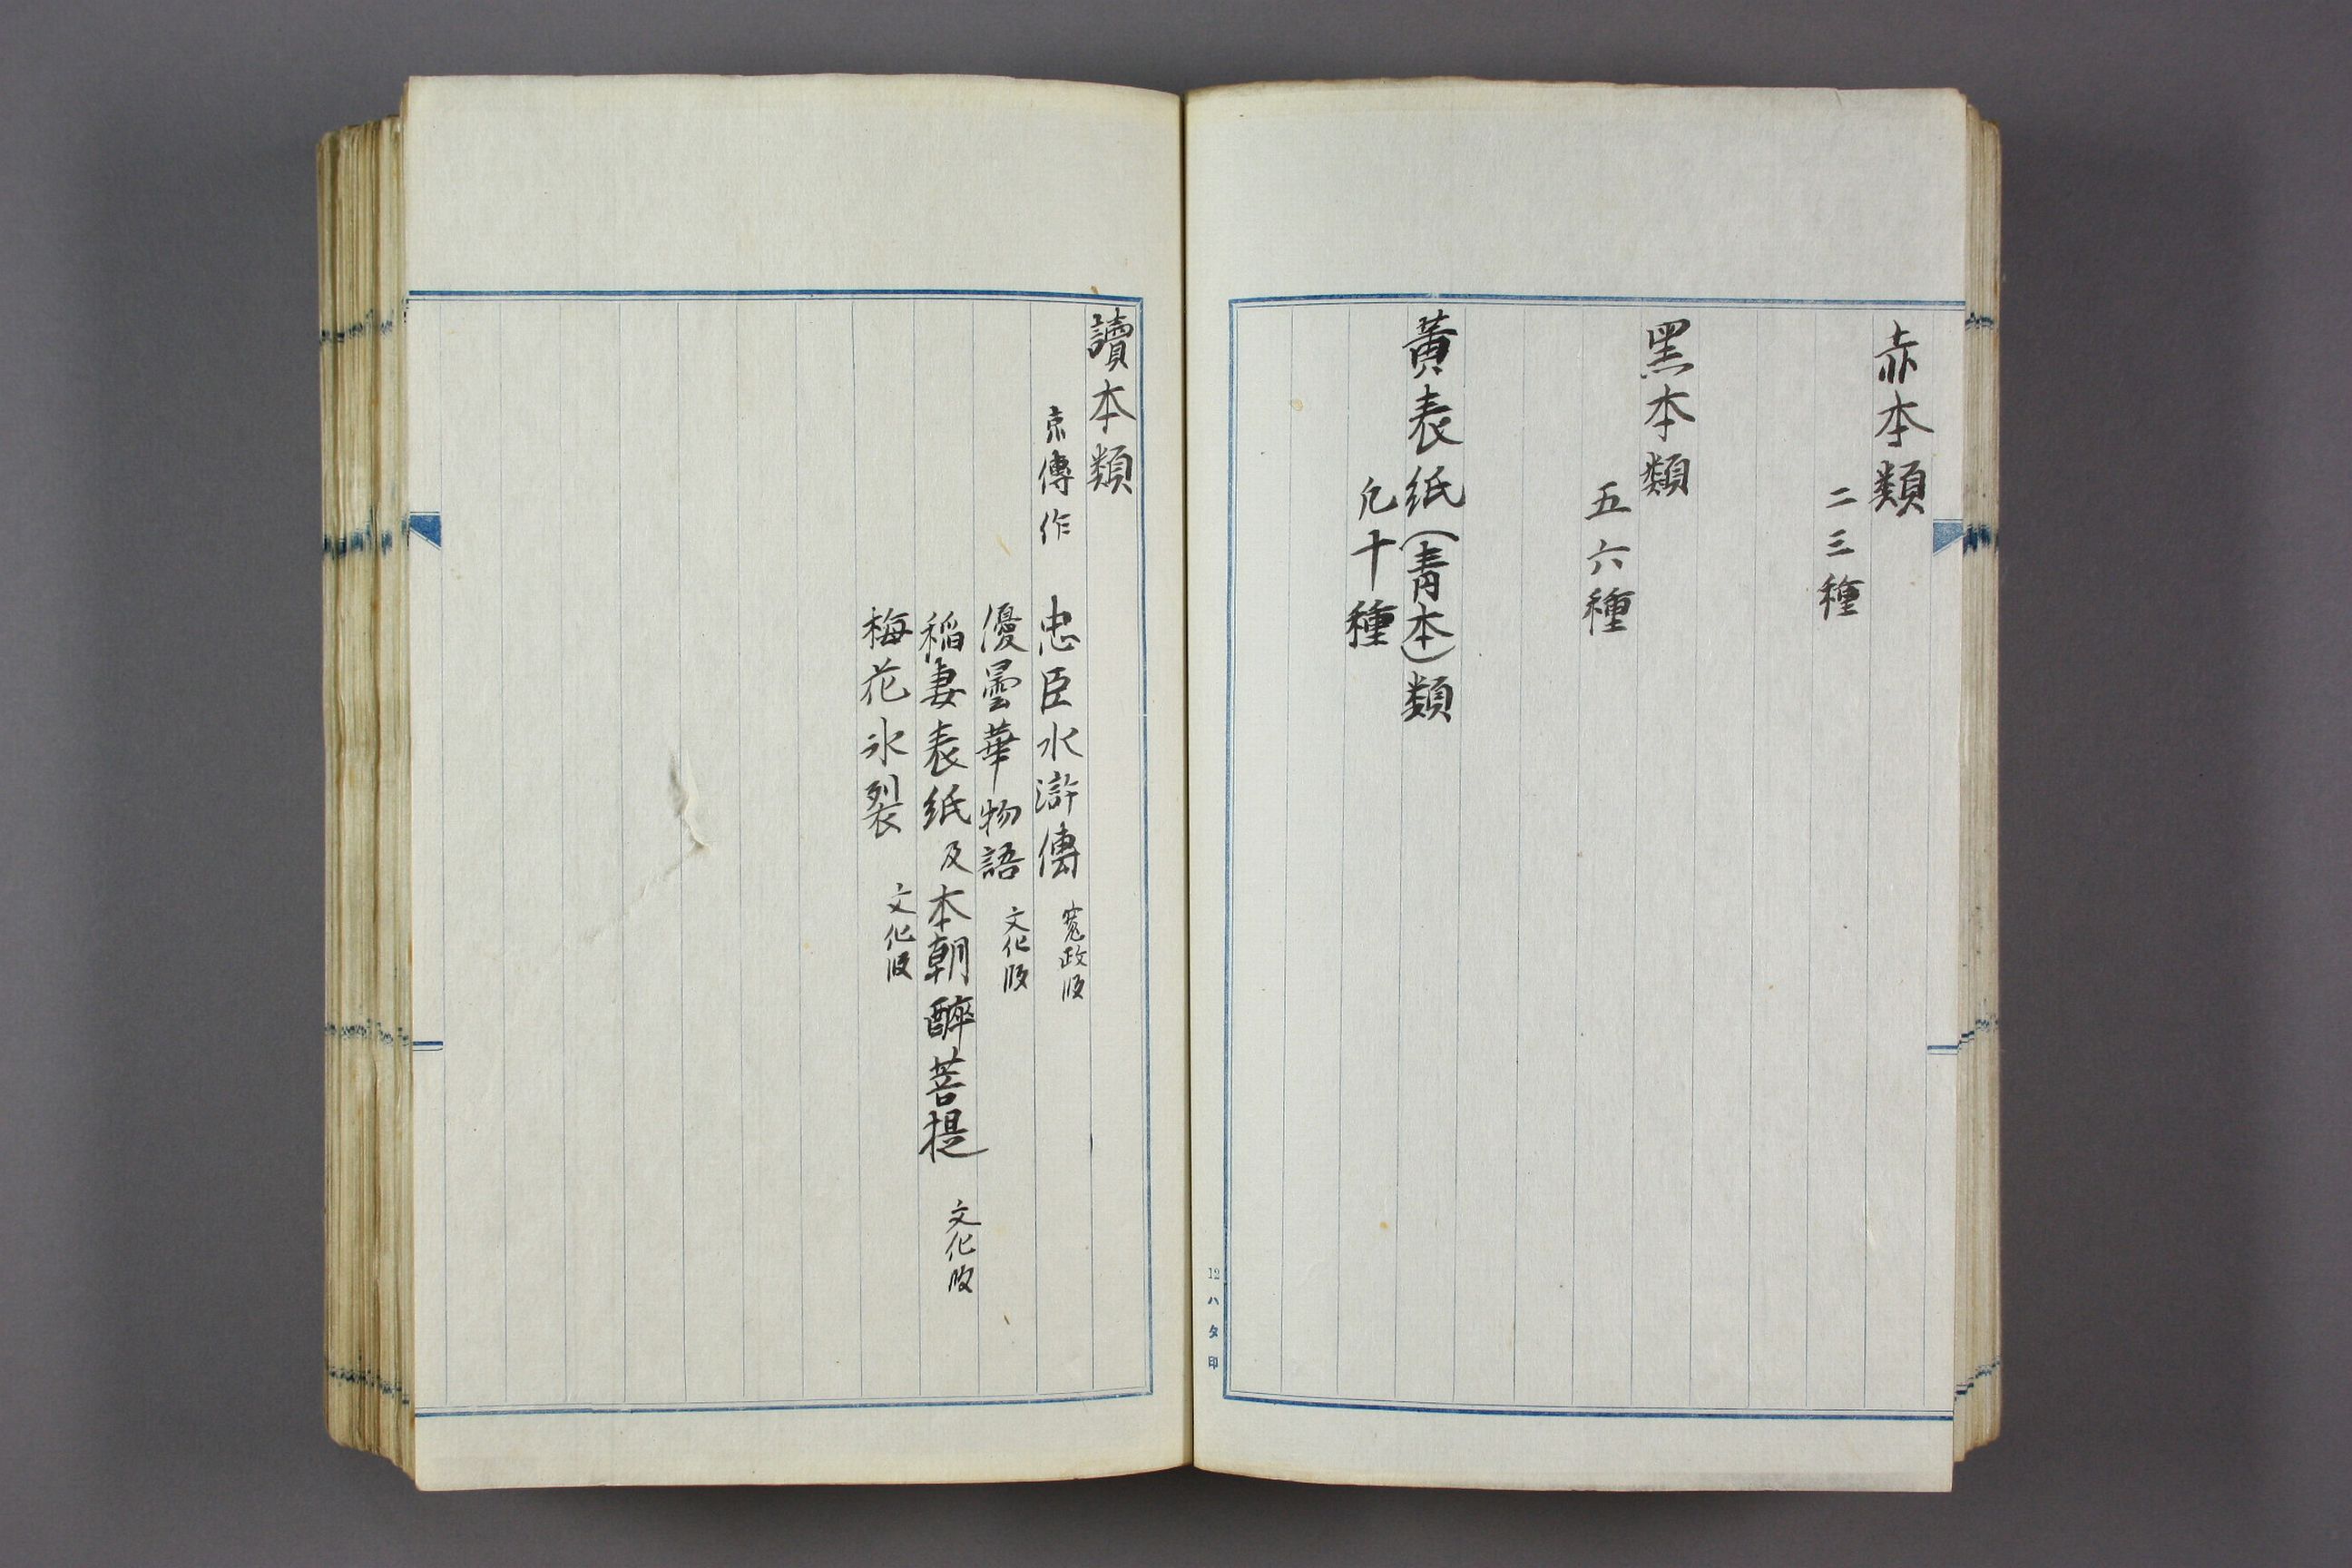 赤本類
二三種
黑本類
五六種
黃表紙(青本)類
凡十種
12ハタ印
讀本類
京傳作 忠臣水滸傳 寬政版
優曇華物語 文化版
稲妻表紙及本朝醉菩提 文化版
梅花氷裂 文化版